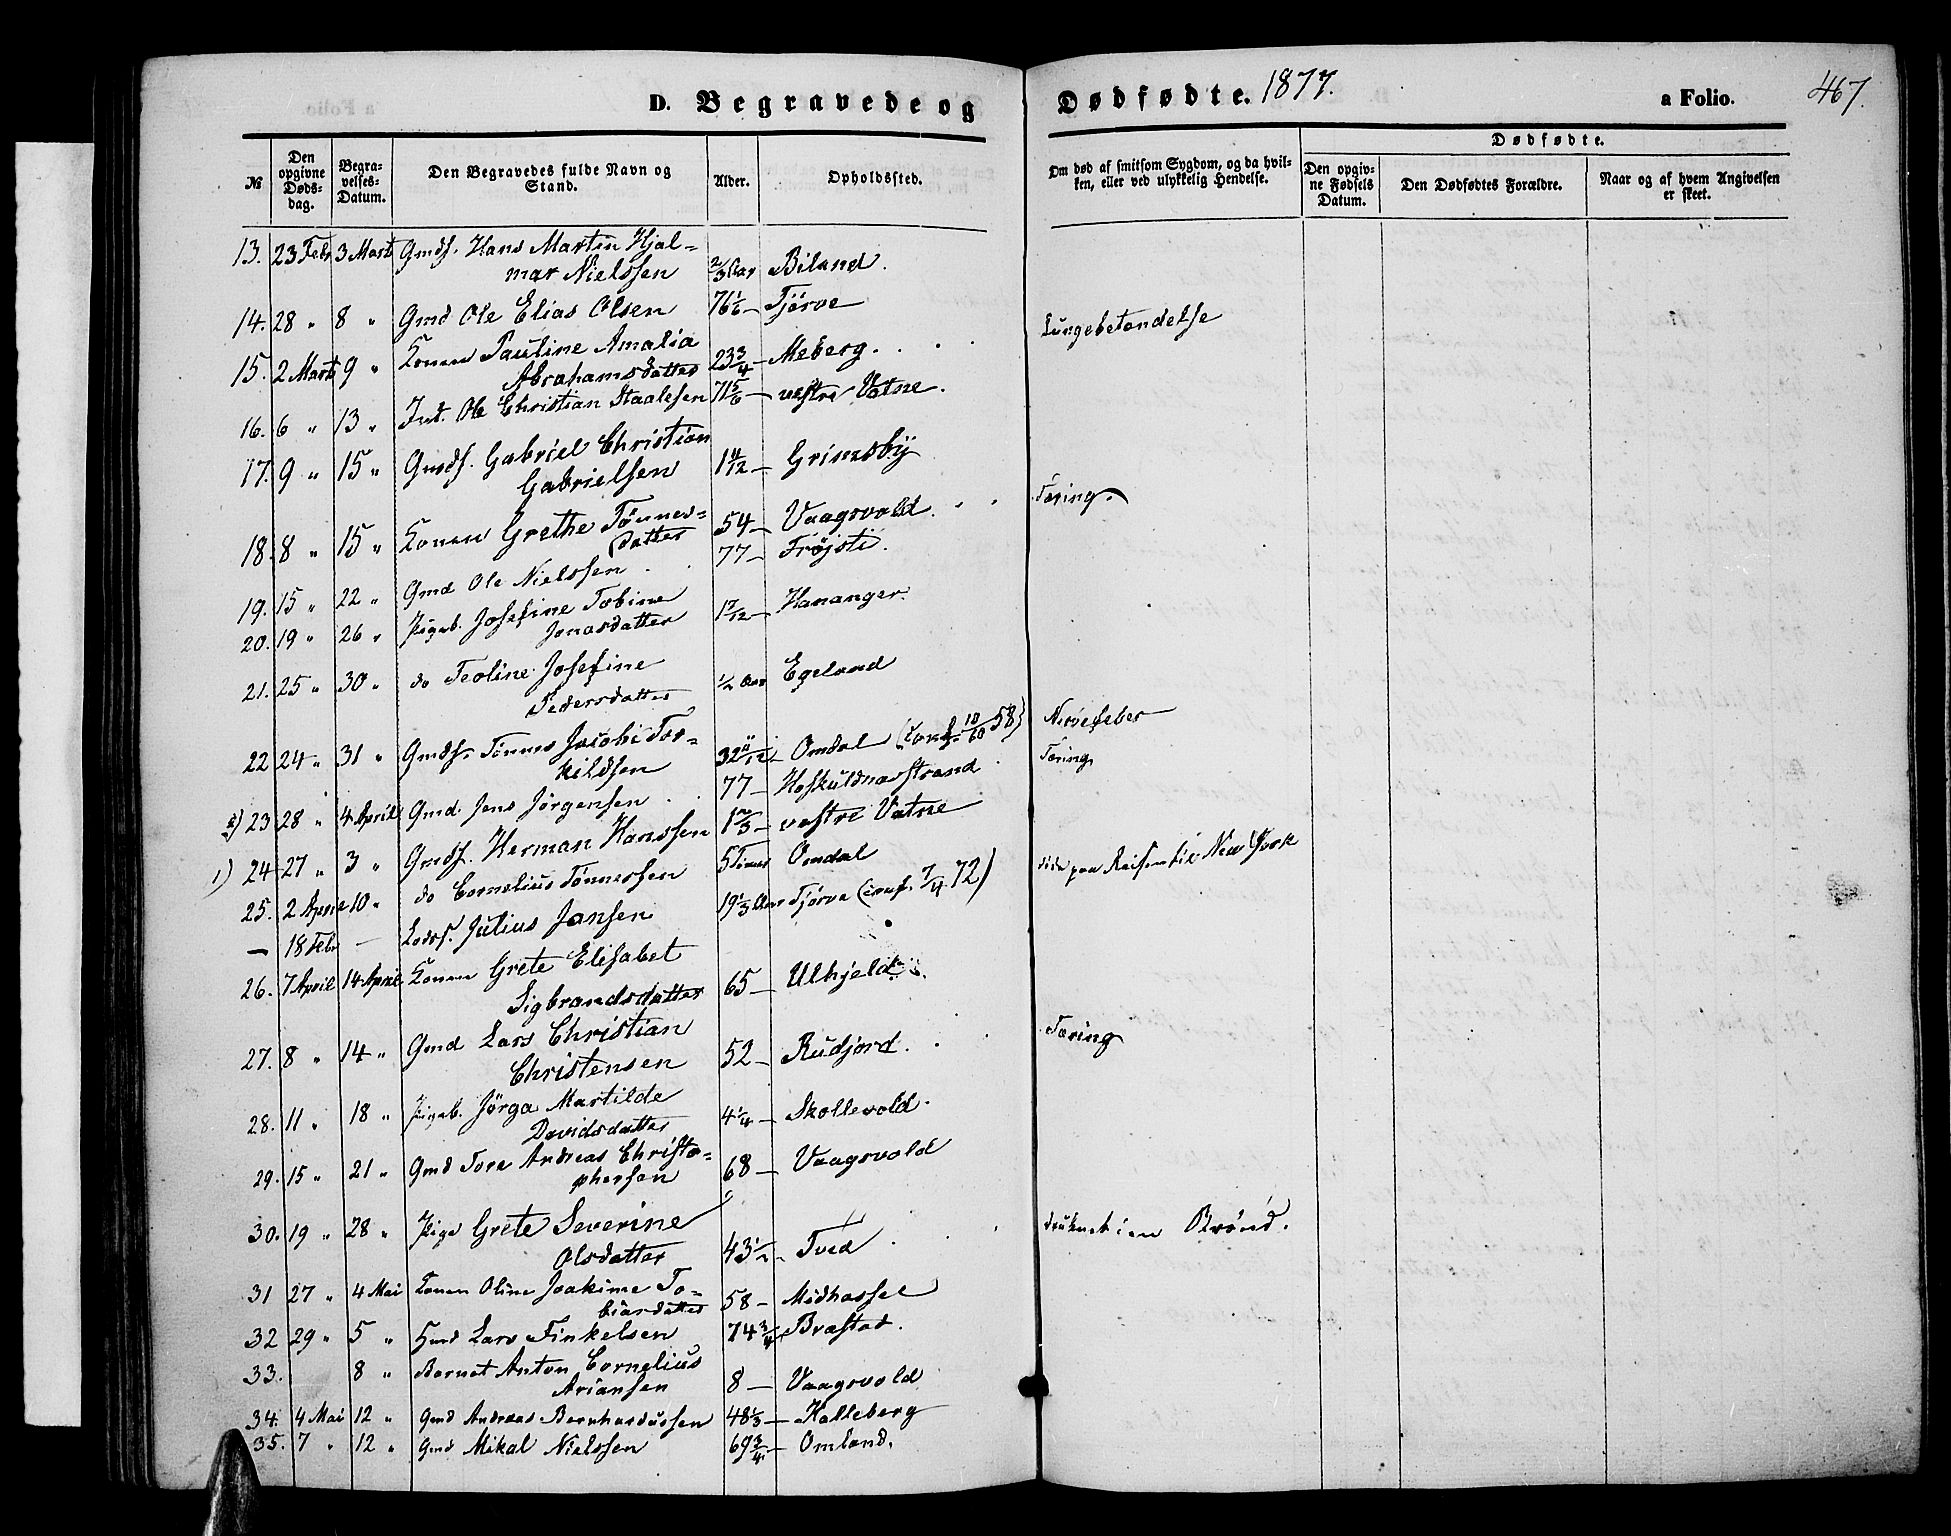 D. Begravede og Dødfødte. 1877. a Folio. 467.
№
Den opgivne Døds-dag.
Begra-velses-Datum.
Den Begravedes fulde Navn og Stand.
Alder.
Opholdssted.
Om død af smitsom Sygdom, og da hvil-ken, eller ved ulykkelig Hendelse.
Dødfødte.
Den opgiv-ne Fødsels Datum.
Den Dødfødtes Forældre.
Naar og af hvem Angivelsen er skeet.
13. 23 Febr 3 Marts Gmds. Hans Martin Hjal-
mar Nielssen 2/3 Aar Biland.
14. 28 " 8 " Gmd Ole Elias Olsen 76 1/6 — Tjørve Lungebetændelse
15. 2 Marts 9 " Konen Pauline Amalia
Abrahamsdatter 23 3/4 — Meberg. . .
16. 6 " 13 " Ole Christian Staalesen 71 5/6 — vestre Vatne.
17. 9 " 15 " Gmds. Gabriel Christian
Gabrielsen 1 4/12 — Grimsby
18. 8 " 15 " Konen Grethe Tønnes=
datter 54 — Vaagsvold. . . Tæring.
19. 15 " 22 " Gmd Ole Nielssen . . 77 — Frøjsti.
20. 19 " 26 " Pigeb. Josefine Tobine
Jonasdatter 1 7/12 — Hananger.
21. 25 " 30 " do Teoline Josefine
Pedersdatter 1/2 Aar Egeland
22 24 " 31 " Gmds. Tønnes Jacobi Tor-
kildsen 32 11/12 — Omdal Nervefeber
2) 23 28 " 4 April Gmd. Jens Jørgensen . . 77 — Hoskuldnesstrand . Tæring
1) 24 27 " 3 " Gmds. Herman Hanssen 1 2/3 — vestre Vatne
25. 2 April 10 " do Cornelius Tønnessen 5 Timer Omdal
— 18 Febr — Julius Jansen 19 1/3 Aar Tjørve 7/4 72) døde paa Reisen til New York
26. 7 April 14 April Konen Grete Elisabet
Sigbrandsdatter 65 — Ulhjeld
27. 8 " 14 " Gmd Lars Christian
Christensen 52 — Rudjord. . . Tæring
28. 11 " 18 " Pigeb. Jørga Martilde
Davidsdatter 4 1/4 — Skollevold.
29. 15 " 21 " Gmd Tore Andreas Christo=
phersen 68 — Vaagsvold
30. 19 " 28 " Pige Grete Severine
Olsdatter 43 1/2 — Tved . . . druknet i en Brønd.
31 27 " 4 Mai Konen Oline Joakime To-
biasdatter 58 — Midhassel
32 29 " 5 " Lars Finkelsen 74 3/4 — Brastad.
33. 8 " Barnet Anton Cornelius
Ariansen 8 — Vaagsvold
34. 4 Mai 12 " Gmd Andreas Bernhardussen 48 1/3 — Kalleberg
35. 7 " 12 " Gmd Mikal Nielssen 69 3/4 — Omland.